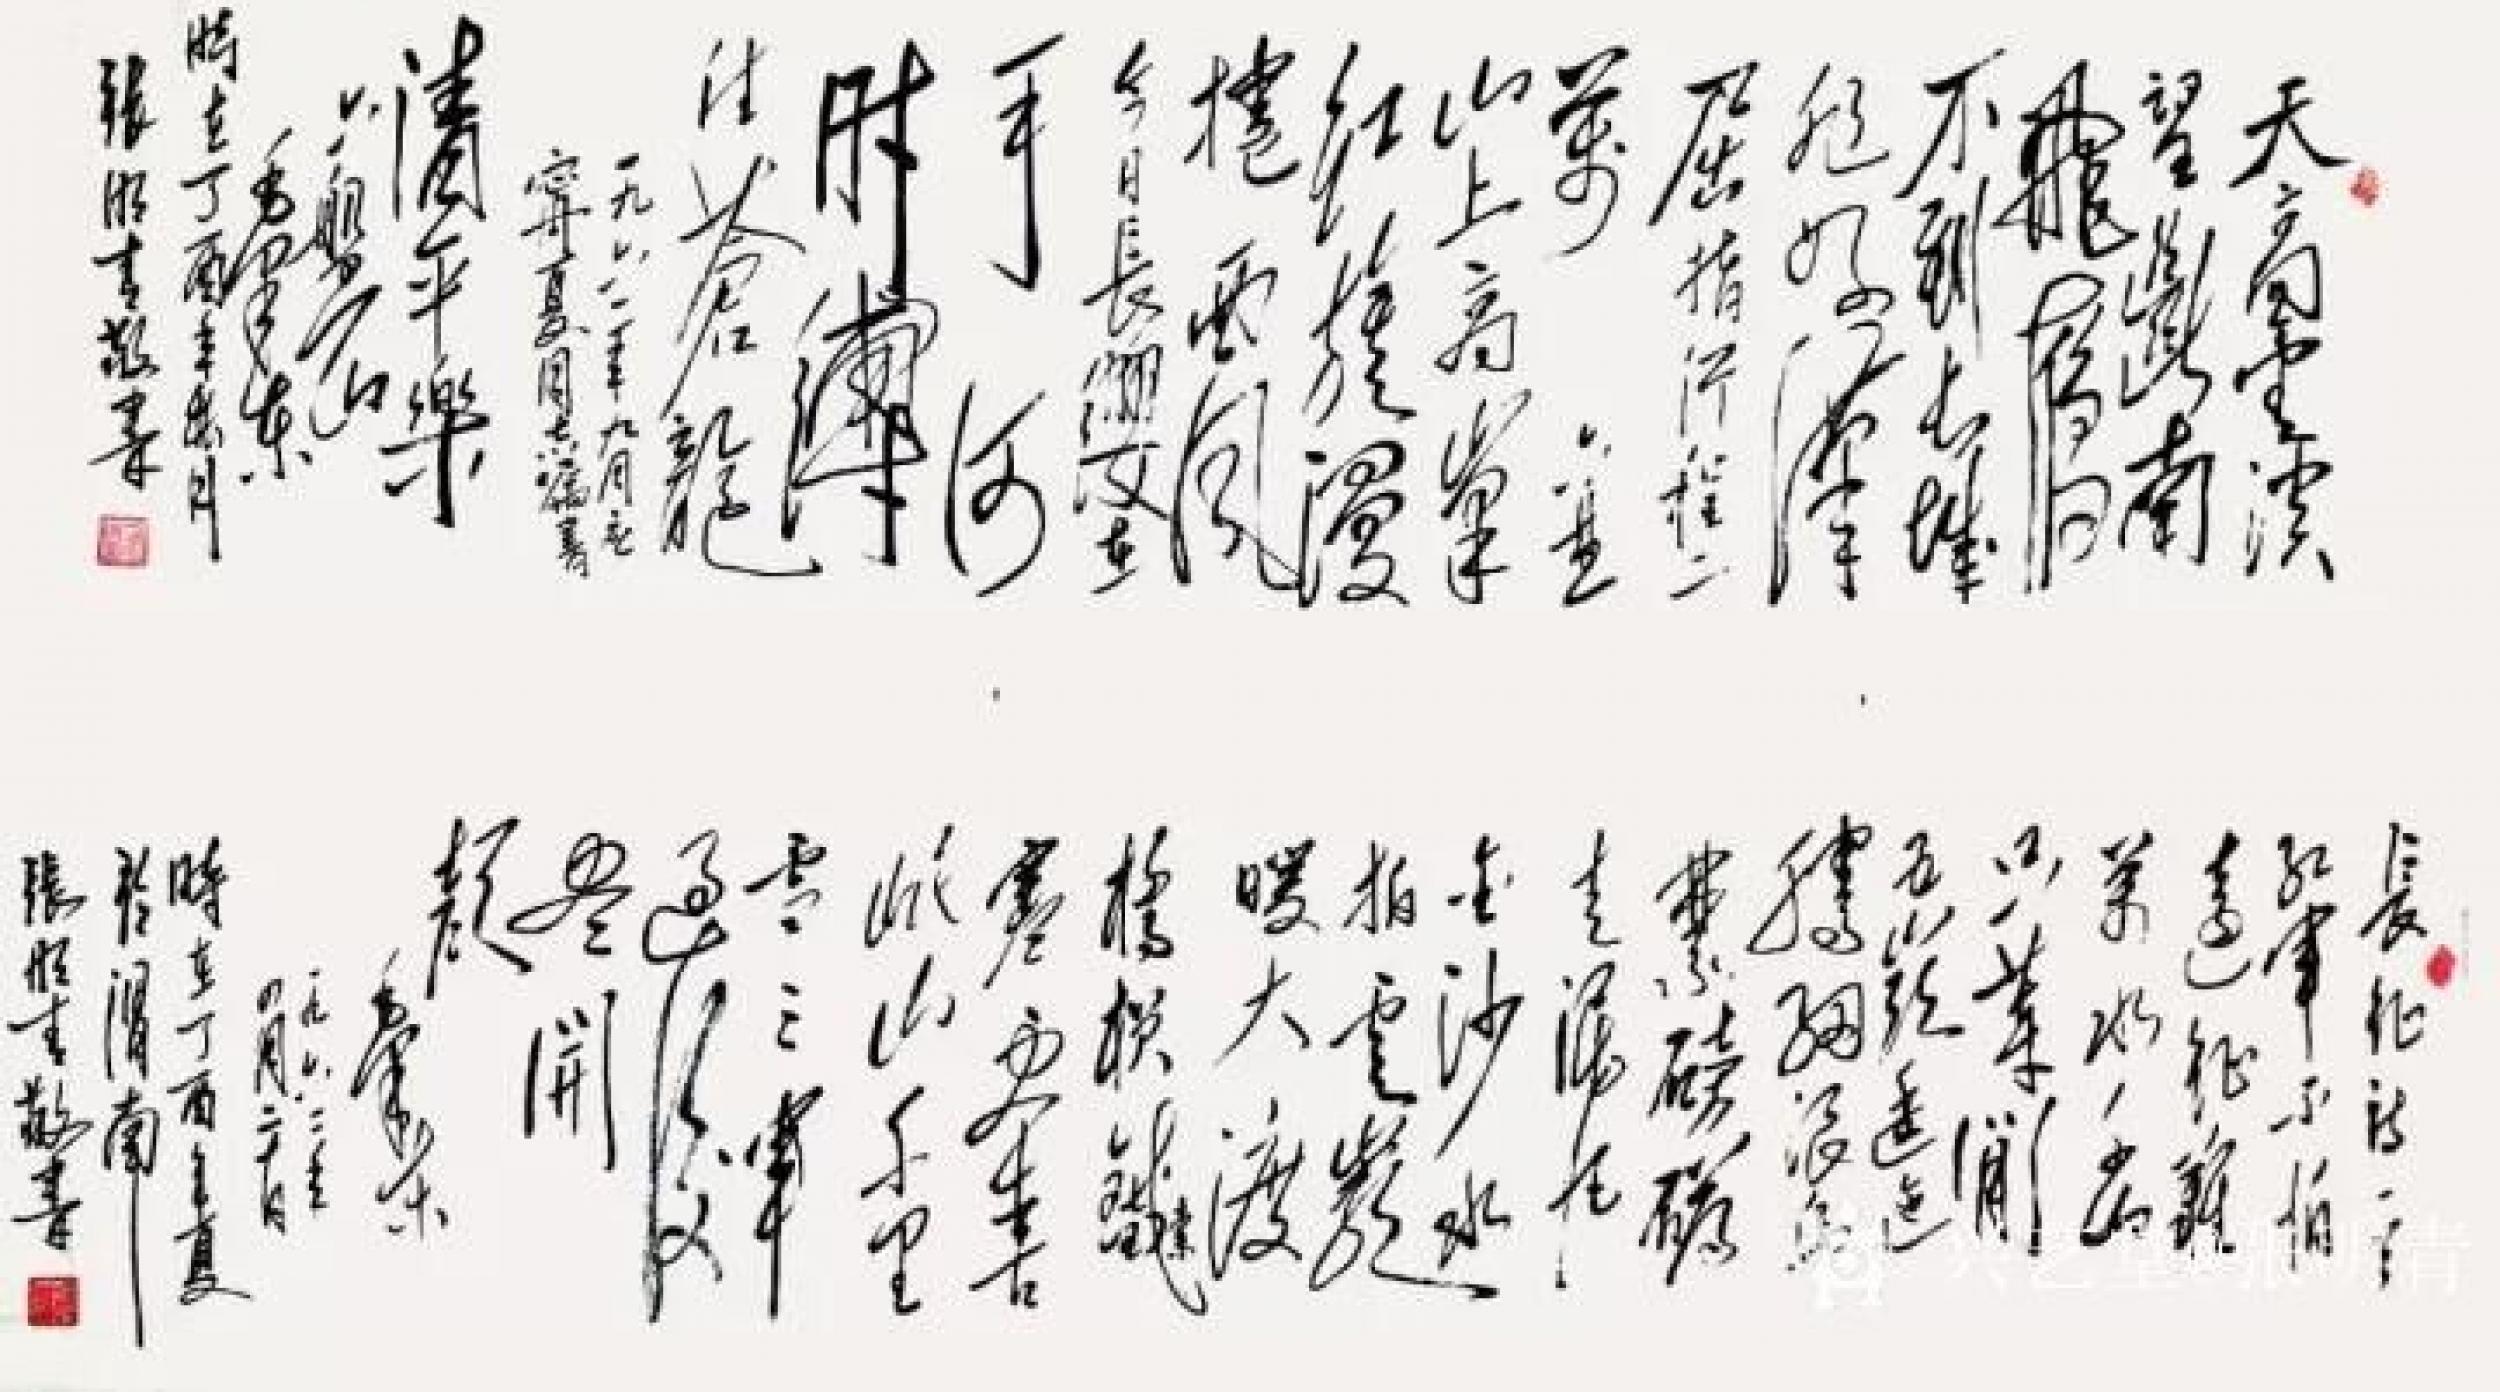 天高雲淡
望斷南
飛鴈
不到长城
非好漢
屈指行程二
萬 六盘
山上高峰
红旗漫
捲西風
今日長缨在
手 何
时縛
住苍龍
一九六一年九月应
寧夏同志嘱書
清平樂
六盤山
毛泽东
時在丁酉年春月
張明青敬書
長征詩一首
红軍不怕
遠征難
萬水千山
只等閒
五嶺逶迤
騰細浪烏
蒙磅礴
走泥丸
金沙水
拍雲巖
暖大渡
橋横鐵索
寒更喜
岷山千里
雪三軍
過後
盡開
顏
毛泽东
一九六二年
四月二十日
時在丁酉年夏
於渭南
張明青敬書